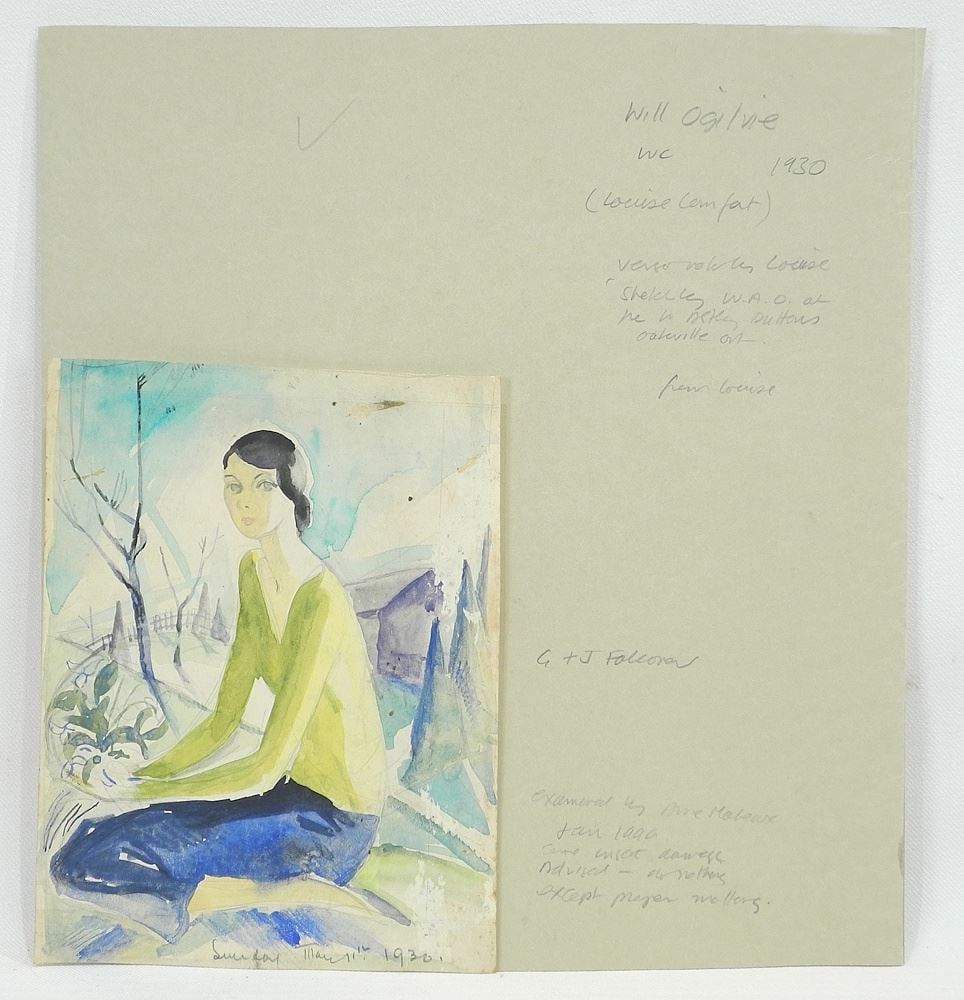 Will Ogilvie
WC 1930
(Louise Comfort)
verso note by Louise
"Sketch by W.A.O. at
Betty Suttons
Oakville Ont.
from Louise
G + J Falconer
examined by Anne
Jan
some insect damage
Advised — do nothing
except proper matting.
Sunday May 11th 1930.